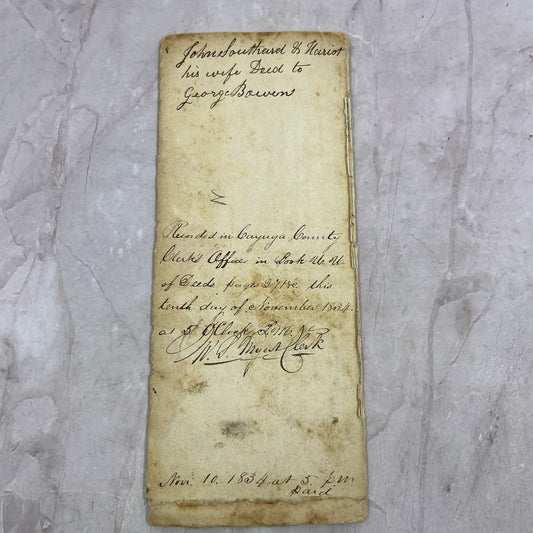 John Southard & Hariot
his wife Deed to
George Bowen
Recorded in Cayuga County
Clerks Office in Book U. U.
of Deeds pages this
tenth day of November 1834.
at 5 O'Clock P. M.
Clerk
Nov. 10. 1834 at 5. p.m
Paid